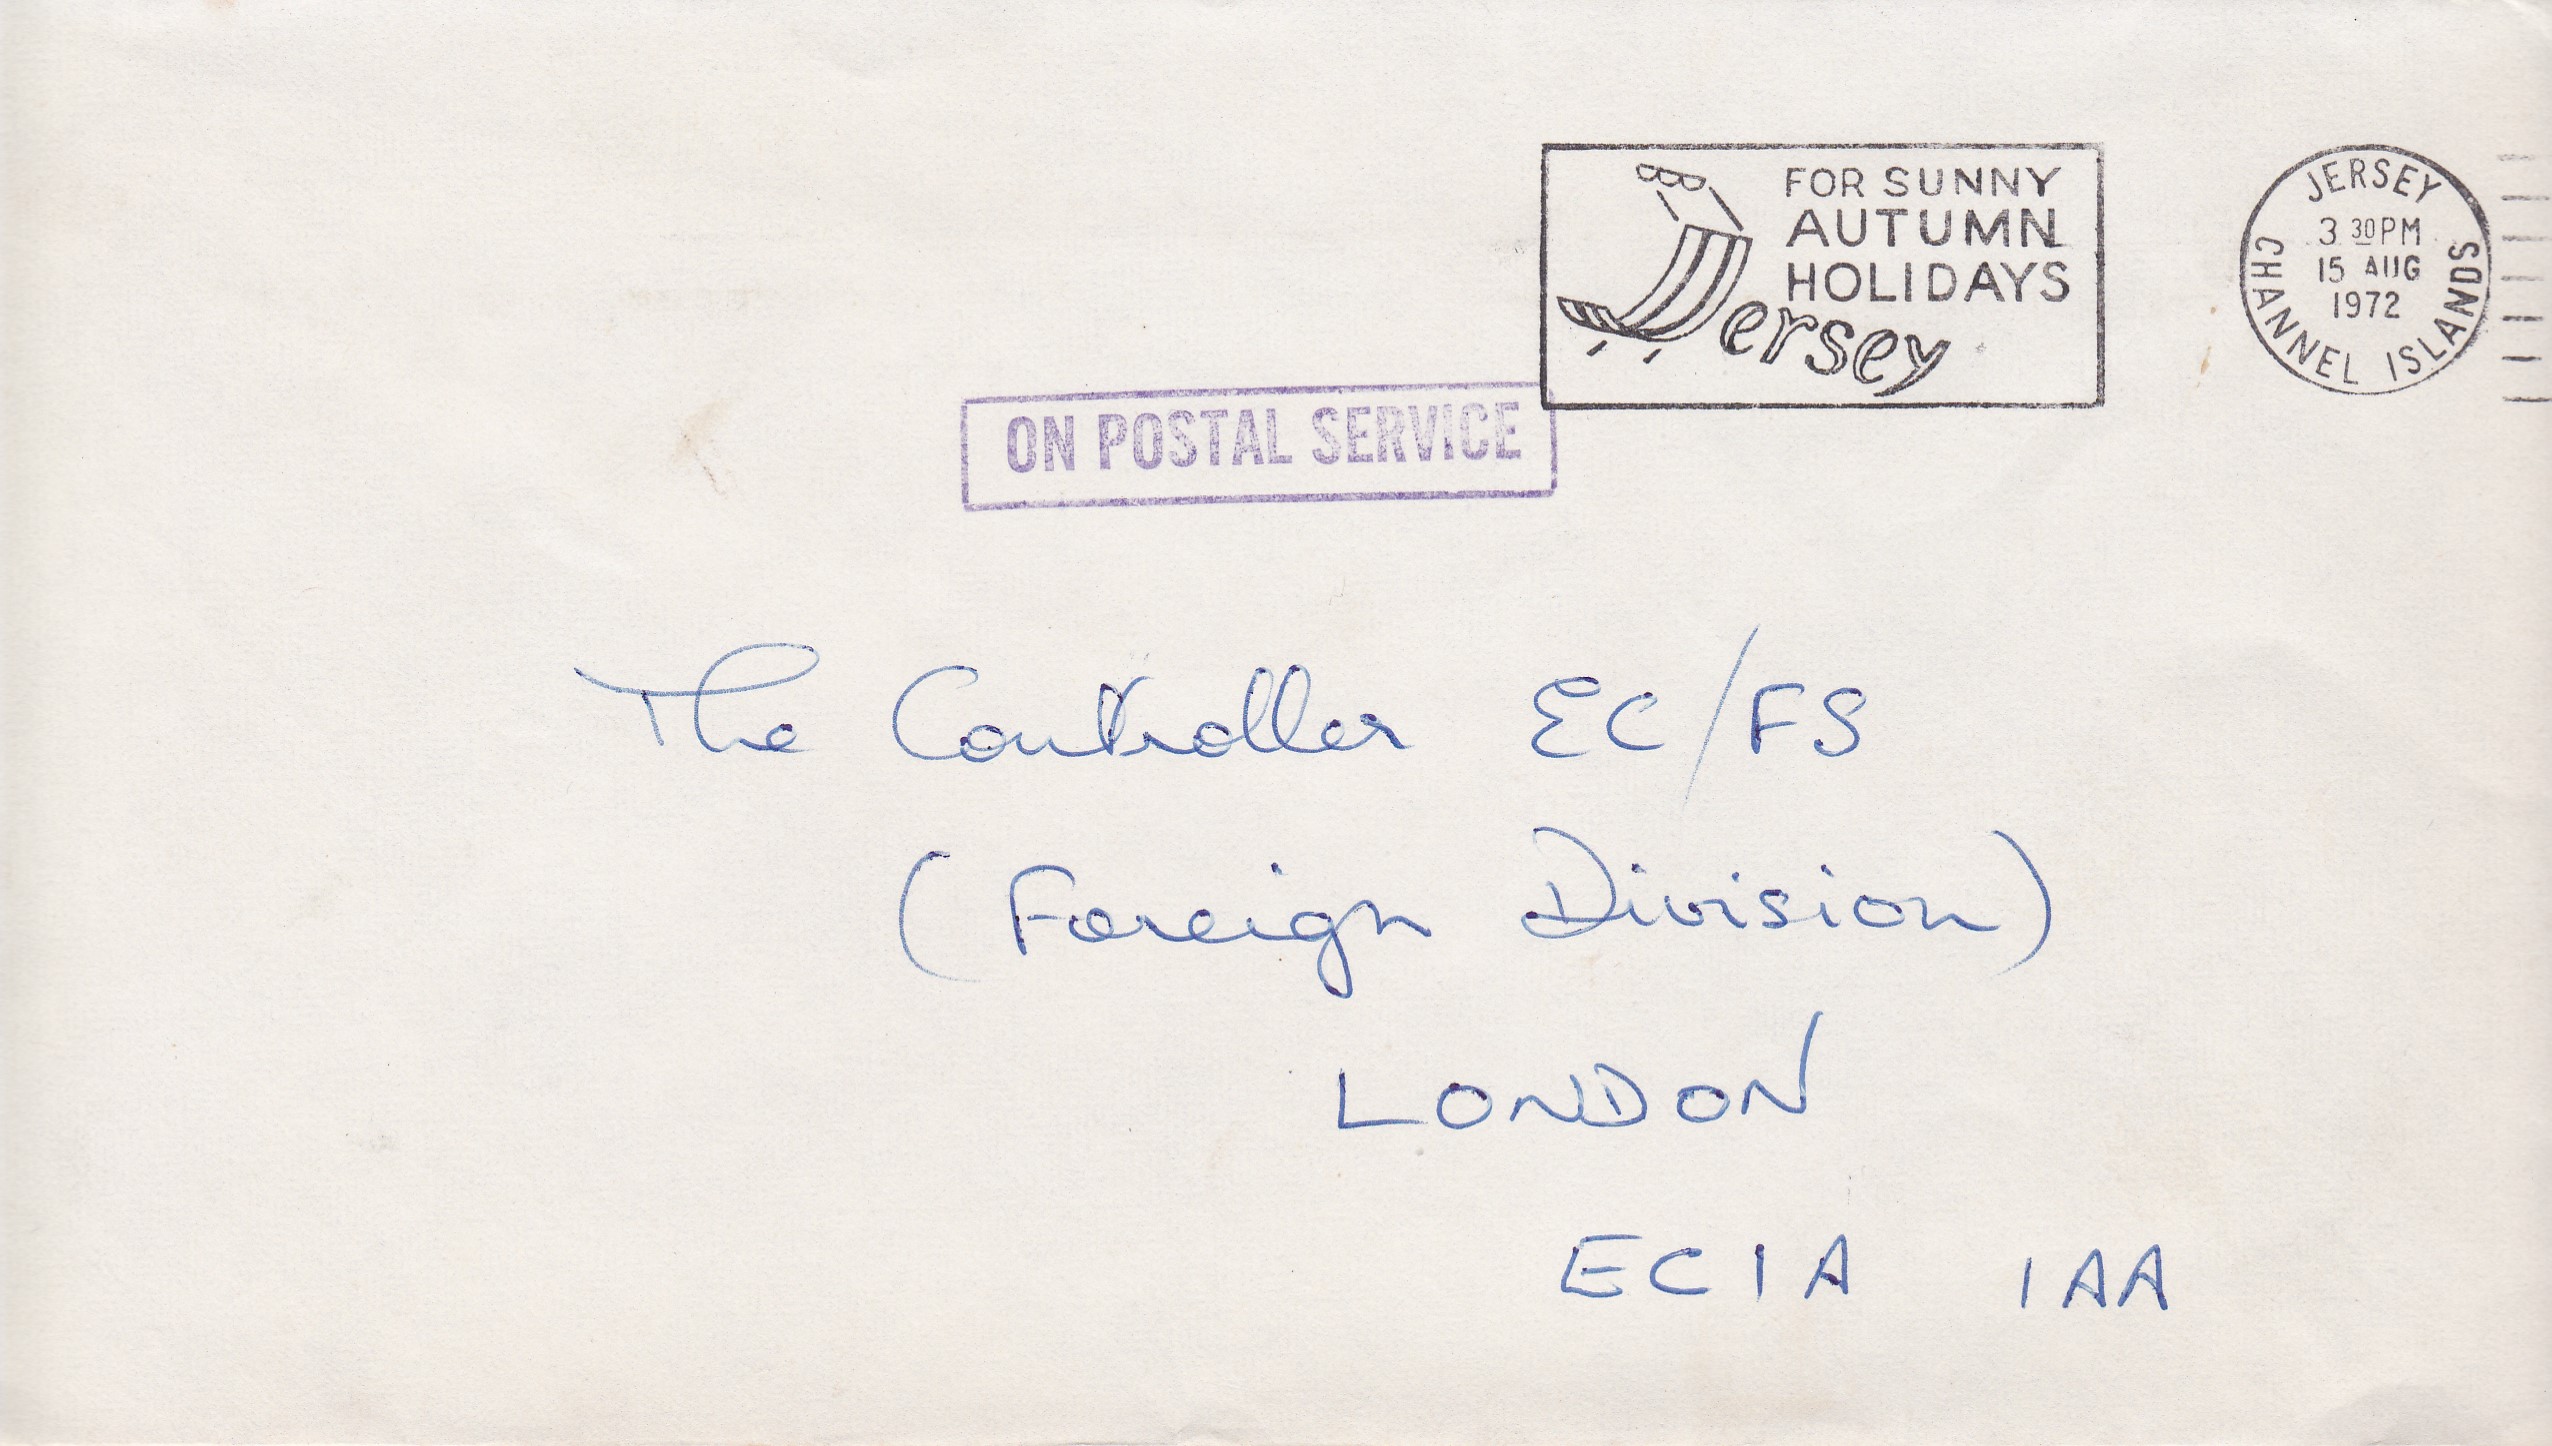 FOR SUNNY
AUTUMN
HOLIDAYS
Jersey
JERSEY
3 30PM
15 AUG
1972
CHANNEL ISLANDS
ON POSTAL SERVICE
The Controller EC/FS
(Foreign Division)
LONDON
EC1A 1AA